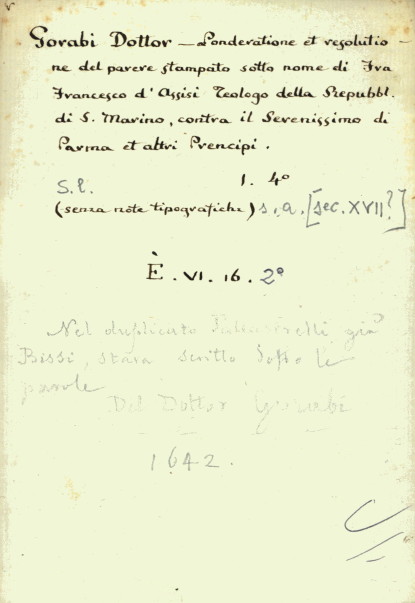 Gorabi Dottor — Ponderatione et resolutio-
ne del parere stampato sotto nome di Fra
Francesco d'Assisi Teologo della Repubbl.
di S. Marino, contra il Serenissimo di
Parma et altri Prencipi.
S. l. 1. 4°
(senza note tipografiche) s. a. [sec. XVII?]
È. VI. 16. 2°
Nel duplicato già
Bissi, stava scritto dopo le
parole
Del Dottor Gorabi
1642.